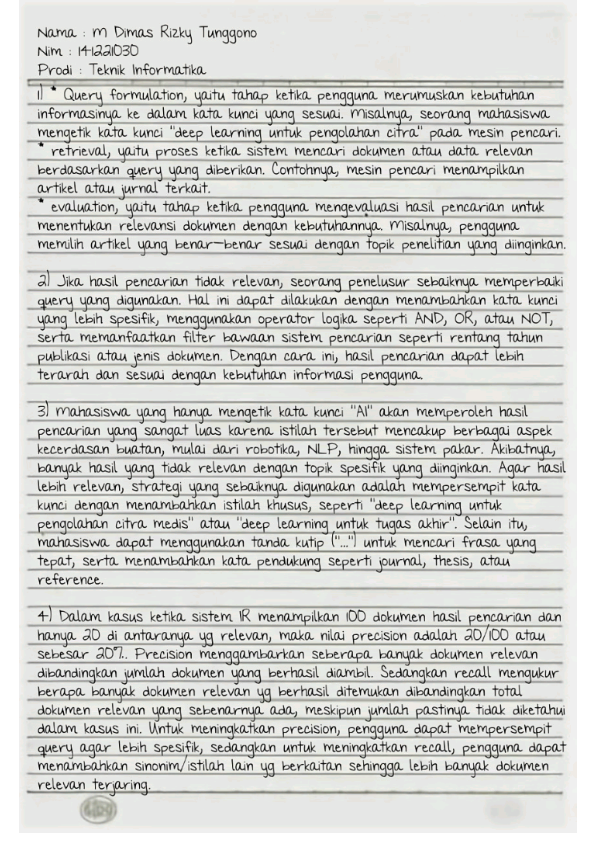 Nama : M Dimas Rizky Tunggono
Nim : 141221030
Prodi : Teknik Informatika
1) * Query formulation, yaitu tahap ketika pengguna merumuskan kebutuhan
informasinya ke dalam kata kunci yang sesuai. Misalnya, seorang mahasiswa
mengetik kata kunci "deep learning untuk pengolahan citra" pada mesin pencari.
* retrieval, yaitu proses ketika sistem mencari dokumen atau data relevan
berdasarkan query yang diberikan. Contohnya, mesin pencari menampilkan
artikel atau jurnal terkait.
* evaluation, yaitu tahap ketika pengguna mengevaluasi hasil pencarian untuk
menentukan relevansi dokumen dengan kebutuhannya. Misalnya, pengguna
memilih artikel yang benar-benar sesuai dengan topik penelitian yang diinginkan.
2) Jika hasil pencarian tidak relevan, seorang penelusur sebaiknya memperbaiki
query yang digunakan. Hal ini dapat dilakukan dengan menambahkan kata kunci
yang lebih spesifik, menggunakan operator logika seperti AND, OR, atau NOT,
serta memanfaatkan filter bawaan sistem pencarian seperti rentang tahun
publikasi atau jenis dokumen. Dengan cara ini, hasil pencarian dapat lebih
terarah dan sesuai dengan kebutuhan informasi pengguna.
3) Mahasiswa yang hanya mengetik kata kunci "AI" akan memperoleh hasil
pencarian yang sangat luas karena istilah tersebut mencakup berbagai aspek
kecerdasan buatan, mulai dari robotika, NLP, hingga sistem pakar. Akibatnya,
banyak hasil yang tidak relevan dengan topik spesifik yang diinginkan. Agar hasil
lebih relevan, strategi yang sebaiknya digunakan adalah mempersempit kata
kunci dengan menambahkan istilah khusus, seperti "deep learning untuk
pengolahan citra medis" atau "deep learning untuk tugas akhir". Selain itu,
mahasiswa dapat menggunakan tanda kutip ("...") untuk mencari frasa yang
tepat, serta menambahkan kata pendukung seperti journal, thesis, atau
reference.
4) Dalam kasus ketika sistem IR menampilkan 100 dokumen hasil pencarian dan
hanya 20 di antaranya yg relevan, maka nilai precision adalah 20/100 atau
sebesar 20%. Precision menggambarkan seberapa banyak dokumen relevan
dibandingkan jumlah dokumen yang berhasil diambil. Sedangkan recall mengukur
berapa banyak dokumen relevan yg berhasil ditemukan dibandingkan total
dokumen relevan yang sebenarnya ada, meskipun jumlah pastinya tidak diketahui
dalam kasus ini. Untuk meningkatkan precision, pengguna dapat mempersempit
query agar lebih spesifik, sedangkan untuk meningkatkan recall, pengguna dapat
menambahkan sinonim/istilah lain yg berkaitan sehingga lebih banyak dokumen
relevan terjaring.